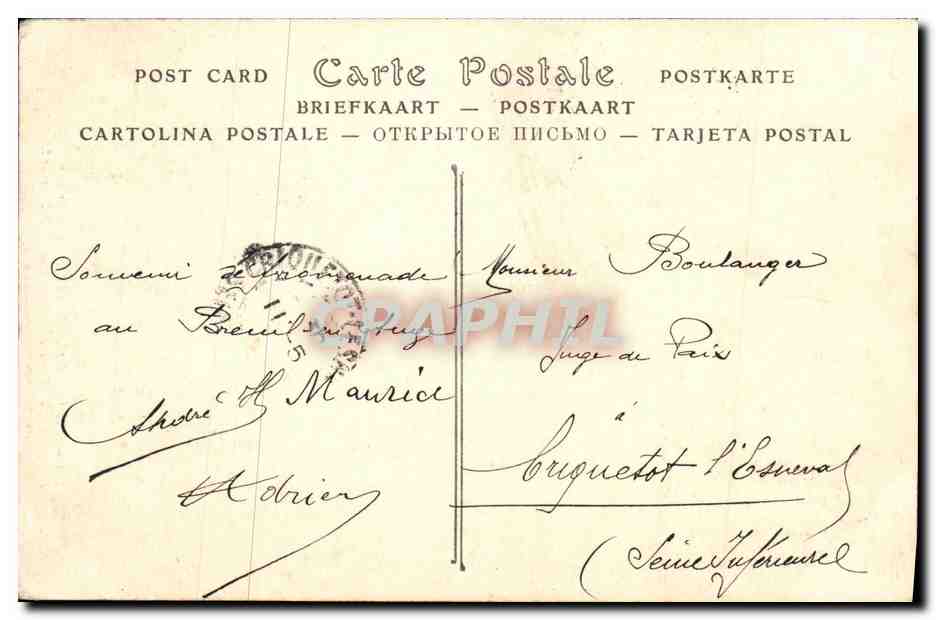 POST CARD Carte Postale POSTKARTE
BRIEFKAART — POSTKAART
CARTOLINA POSTALE — ОТКРЫТОЕ ПИСЬМО — TARJETA POSTAL
Souvenir de promenade
au Breuil-en-Auge
André H Maurice
Adrien
Monsieur Boulanger
Juge de Paix
à
Criquetot l'Esneval
(Seine Inférieure)
CPAPHIL